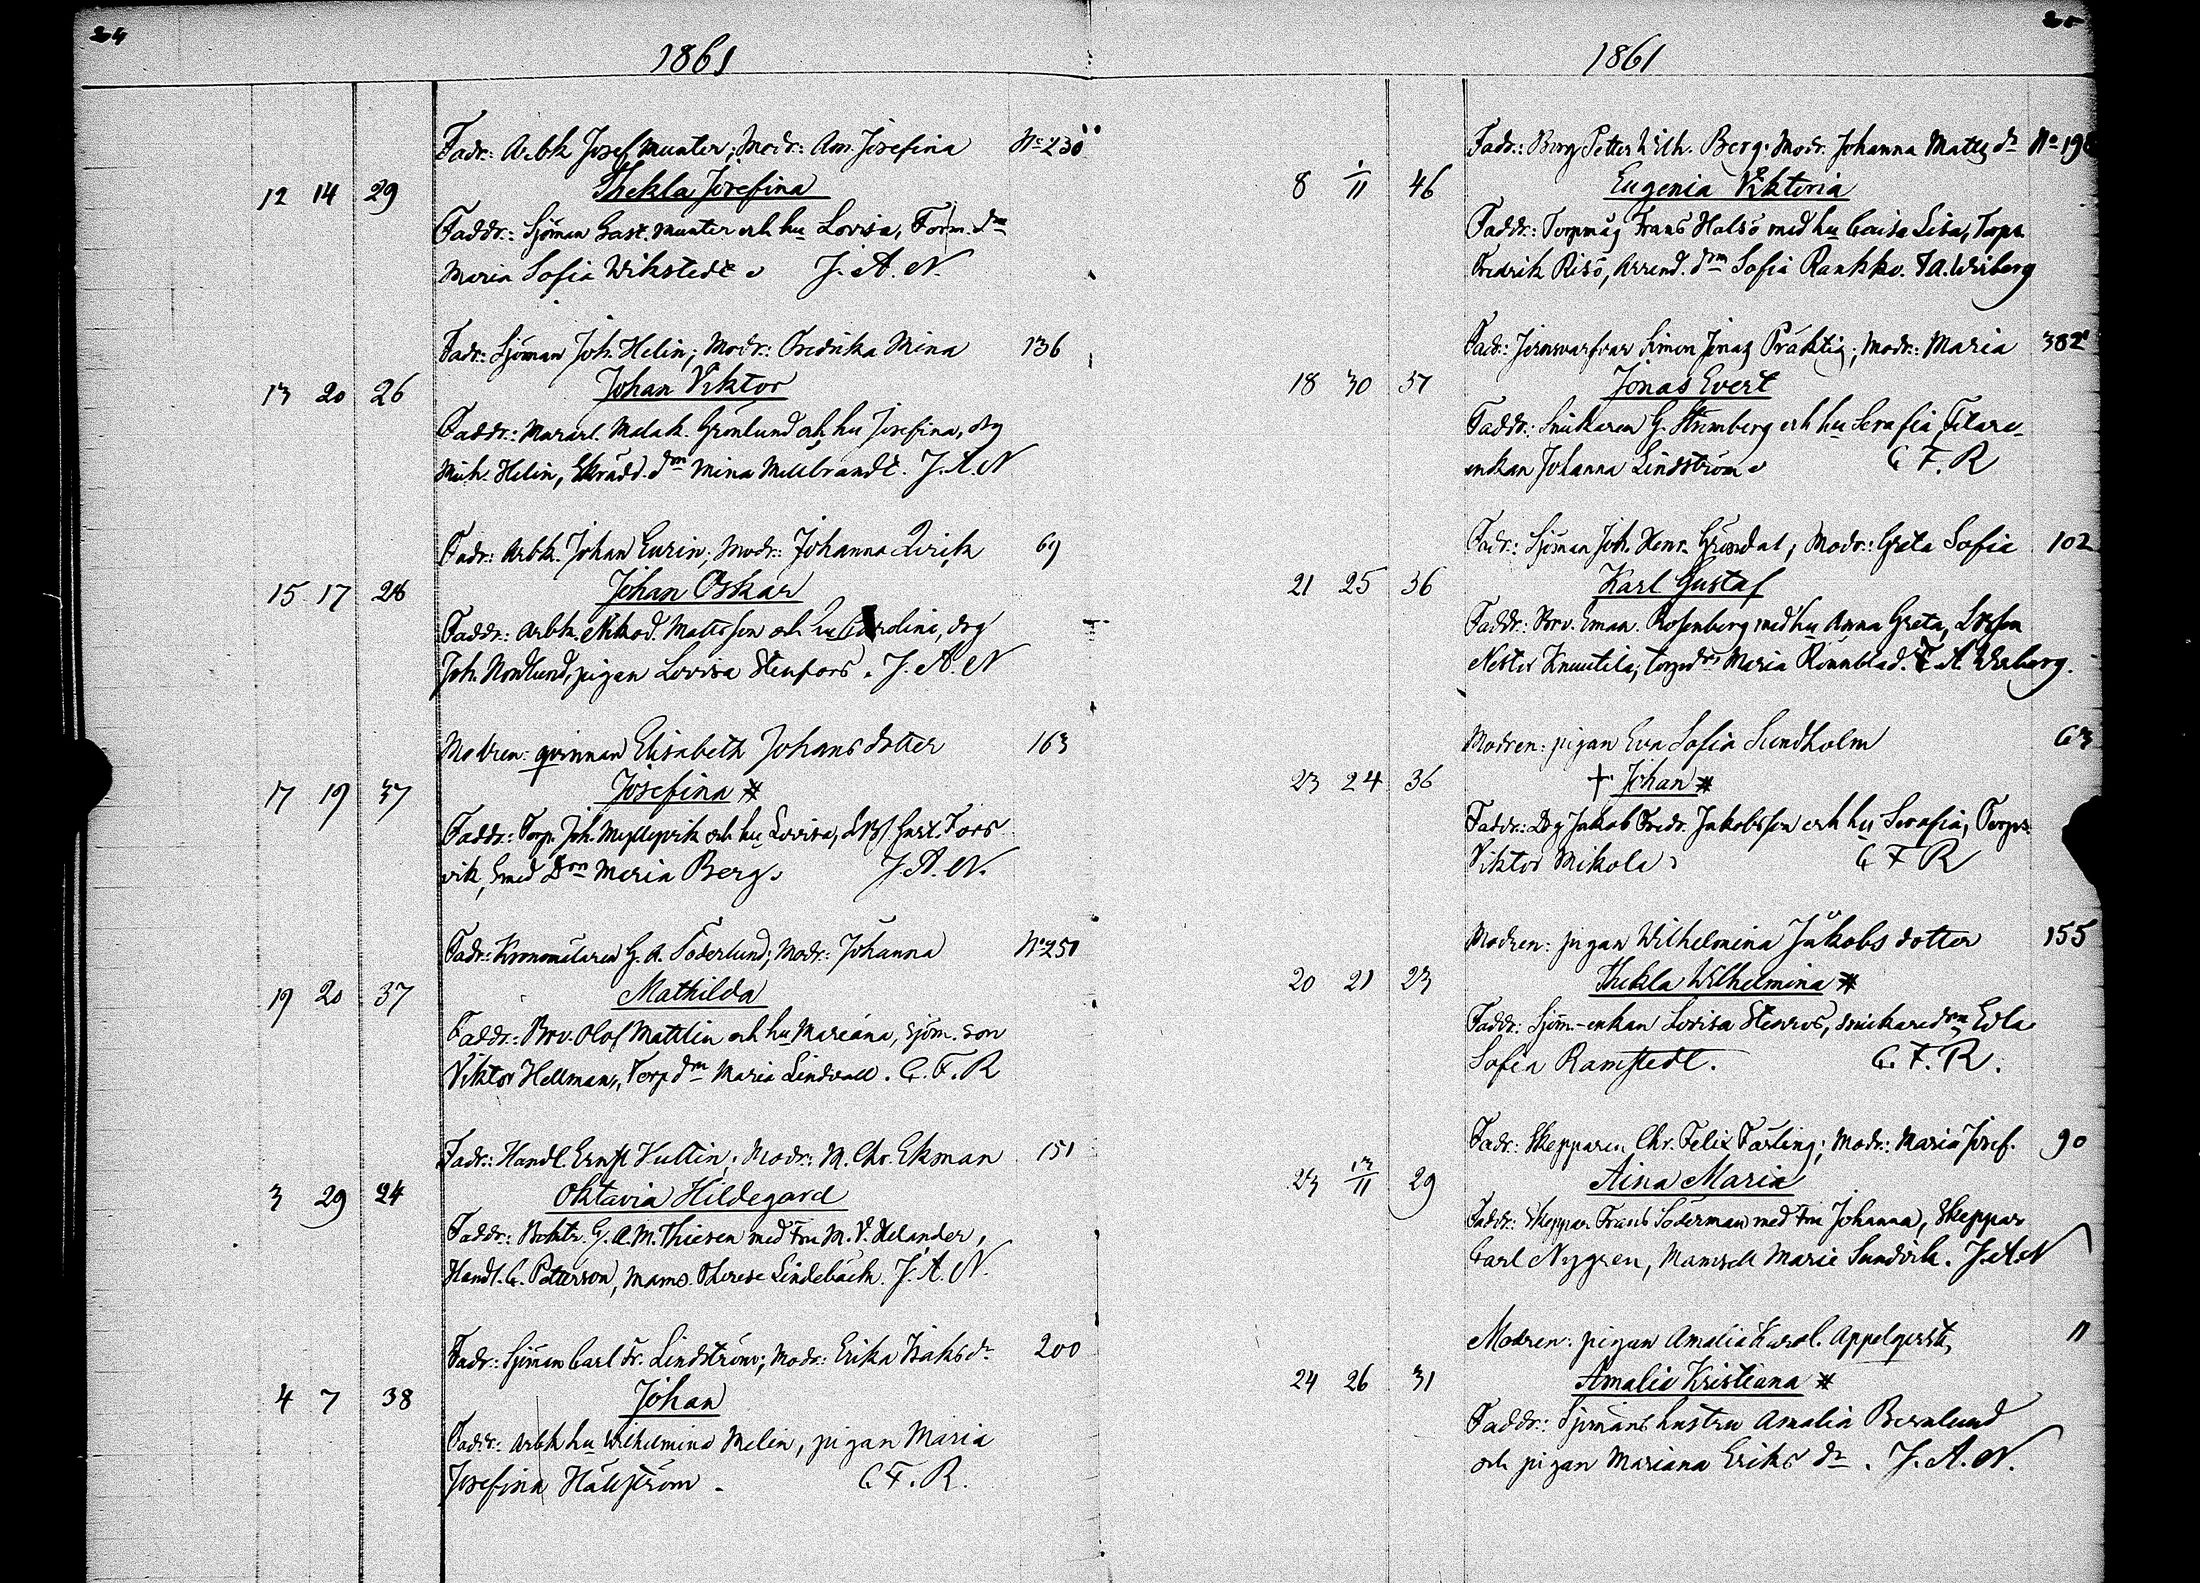 24
1861
Fadr: Arbk Josef Munter; Modr: Am. Josefina No 230
12 14 29 Thekla Josefina
Faddr: Sjöman Gast. Munter och hu Lovisa, Form. dn
Maria Sofia Wikstedt J. A. N.
Fadr: Sjöman Joh. Helin; Modr: Fredrika Mina 136
13 20 26 Johan Viktor
Faddr: Murarl. Malak. Grönlund och hu Josefina, drg
Mich. Helin, Skrädd. dn Mina Millbrandt. J. A. N
Fadr: Arbk. Johan Eurin; Modr: Johanna Qvick 69
15 17 28 Johan Oskar
Faddr: Arbk. Nikod. Mattsson och hu Carolina, drg
Joh. Nordlund, pigan Lovisa Stenfors. J. A. N
Modren: qvinnan Elisabeth Johans dotter 163
17 19 37 Josefina
Faddr: Torp. Joh. och hu Lovisa, Gust. Fors
vik, Smed Dn Maria Berg. J. A. N.
Fadr: G. A. Söderlund; Modr: Johanna No 251
19 20 37 Mathilda
Faddr: Brv. Olof Mattlin och hu Mariana, Sjöm. son
Viktor Hellman, Torp dn Maria Lindvall. C. F. R
Fadr: Handl. Ernst Hultin; Modr: M. Chr. Ekman 151
3 29 24 Oktavia Hildegard
Faddr: Boktr. G. A. M. Thiesen med Fru M. V. Helander,
Handl. C. Petterson, Mams. Therese Lindebäck. J. A. N.
Fadr: Sjöman Carl Fr. Lindström; Modr: Erika Isaks dr 200
4 7 38 Johan
Faddr: Arbk hu Wilhelmina Melin, pigan Maria
Josefina Hällström. C. F. R.
1861
Fadr: Petter Wilh. Berg; Modr. Johanna Matts dr No
8 1/11 46 Eugenia Viktoria
Faddr: Torpmåg Frans Halso med hu Caisa Lisa, Torps.
Fredrik Riso, Arrend. dn Sofia Rankko. F A. Wriberg
Fadr: Simon Jonas Präktig; Modr: Maria 382
18 30 37 Jonas Evert
Faddr: Snickaren G. Strömberg och hu Serafia, Filare-
enkan Johanna Lindström C F. R
Fadr: Sjöman Joh. Henr. Gröndal; Modr: Greta Sofia 102
21 25 36 Karl Gustaf
Faddr: Brv. Eman. Rosenberg med hu Anna Greta,
Nestor Knuutila, Torp dn Maria Rönnblad. F. A. Wriberg.
Modren: pigan Eva Sofia Sundholm 63
23 24 36 † Johan
Faddr: Drg Jakob Fredr. Jakobsson och hu Serafia, Torps.
Viktor Mikola C F R
Modren: pigan Wilhelmina Jakobs dotter 155
20 21 23 Thekla Wilhelmina
Faddr: Sjöm.-enkan Lovisa Stenros, snickare dn Edla
Sofia Ramstedt. C. F. R.
Fadr: Skepparen Chr. Felix Färling; Modr: Maria Josef. 90
23 13/11 29 Aina Maria
Faddr: Skeppar Frans Söderman med Fru Johanna, Skeppar
Carl Nygren, Mamsell Marie Sundvik. J. A. N
Modren: pigan Amalia Karol. Appelqvist 11
24 26 31 Amalia Kristiana
Faddr: Sjömans hustru Amalia Bernlund
och pigan Mariana Eriks dr. J. A. N.